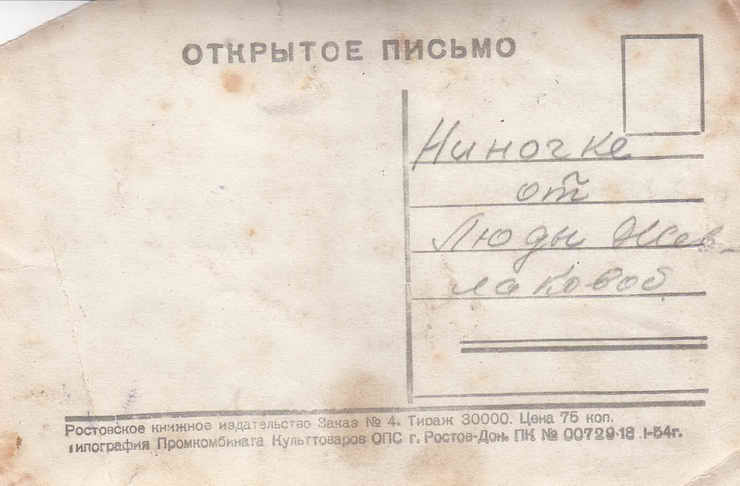 ОТКРЫТОЕ ПИСЬМО
Ниночке
от
Люды Жев-
лаковой
Ростовское книжное издательство Заказ № 4. Тираж 30000. Цена 75 коп.
типография Промкомбината Культтоваров ОПС г. Ростов-Дон. ПК № 00729-18 1-54г.